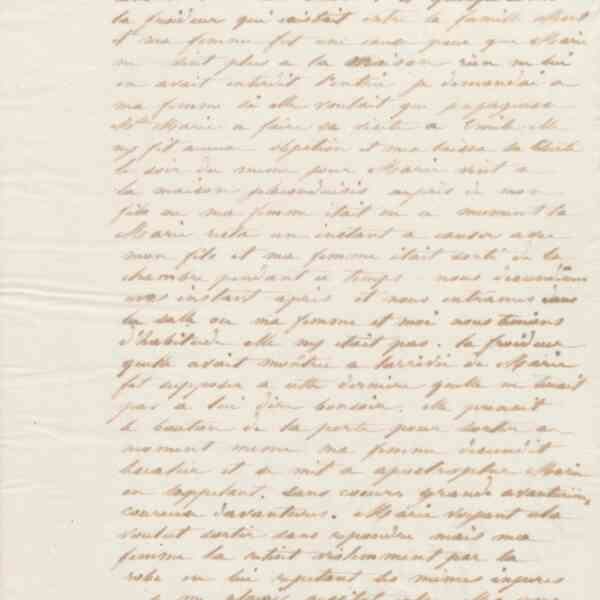 la froideur qui existait entre la famille
et ma femme fit une cause pour que Marie
ne vint plus a la maison rien ne lui
en avait interdit l'entrée je demandai a
ma femme si elle voulait que
Marie a faire sa visite a Emile elle
ny fit aucune objection et me laissa
le soir du meme jour Marie vint a
la maison auprès de mon
fils ou ma femme était en ce moment la
Marie resta un instant a causer avec
mon fils et ma femme était sorti de la
chambre pendant ce temps. nous descendimes
un instant après et nous entrames dans
la salle ou ma femme et moi nous tenions
d'habitude elle ny était pas. la froideur
quelle avait montrée a larrivée de Marie
fit supposer a cette dernière quelle ne tenait
pas a lui dire bonsoir. elle prenait
le bouton de la porte pour sortir au
moment meme ma femme descendit
lescalier et se mit a apostropher Marie
en lappelant. sans coeur grande aventurière
coureuse d'aventures. Marie voyant cela
voulut sortir sans repondre mais ma
femme la retint violemment par la
robe en lui repetant les mêmes injures